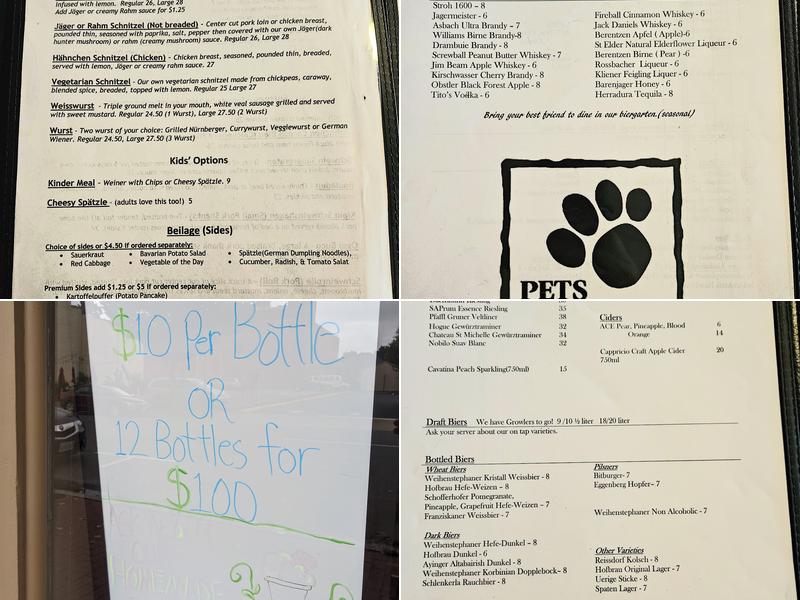 infused with lemon. Regular 26, Large 28
Add Jäger or creamy Rahm sauce for $1.25
Jäger or Rahm Schnitzel (Not breaded) - Center cut pork loin or chicken breast,
pounded thin, seasoned with paprika, salt, pepper then covered with our own Jäger(dark
hunter mushroom) or rahm (creamy mushroom) sauce. Regular 26, Large 28
Hähnchen Schnitzel (Chicken) - Chicken breast, seasoned, pounded thin, breaded,
served with lemon, Jäger or creamy rahm sauce. 27
Vegetarian Schnitzel - Our own vegetarian schnitzel made from chickpeas, caraway,
blended spice, breaded, topped with lemon. Regular 25 Large 27
Weisswurst - Triple ground melt in your mouth, white veal sausage grilled and served
with sweet mustard. Regular 24.50 (1 Wurst), Large 27.50 (2 Wurst)
Wurst - Two wurst of your choice: Grilled Nürnberger, Currywurst, Veggiewurst or German
Wiener. Regular 24.50, Large 27.50 (3 Wurst)
Kids' Options
Kinder Meal - Weiner with Chips or Cheesy Spätzle. 9
Cheesy Spätzle - (adults love this too!) 5
Beilage (Sides)
Choice of sides or $4.50 if ordered separately:
• Sauerkraut • Bavarian Potato Salad • Spätzle(German Dumpling Noodles),
• Red Cabbage • Vegetable of the Day • Cucumber, Radish, & Tomato Salat
Premium Sides add $1.25 or $5 if ordered separately:
• Kartoffelpuffer (Potato Pancake)
Stroh 1600 – 8
Jagermeister - 6
Asbach Ultra Brandy – 7
Williams Birne Brandy-8
Drambuie Brandy - 8
Screwball Peanut Butter Whiskey - 7
Jim Beam Apple Whiskey - 6
Kirschwasser Cherry Brandy - 8
Obstler Black Forest Apple - 8
Tito's Vodka - 6
Fireball Cinnamon Whiskey - 6
Jack Daniels Whiskey - 6
Berentzen Apfel (Apple)-6
St Elder Natural Elderflower Liqueur - 6
Berentzen Birne ( Pear ) -6
Rossbacher Liqueur - 6
Kliener Feigling Liquer - 6
Barenjager Honey - 6
Herradura Tequila - 8
Bring your best friend to dine in our biergarten.(seasonal)
PETS
$10 Per Bottle
OR
12 Bottles for
$100
HOMEMADE
SAPrum Essence Riesling 35
Pfaffl Gruner Veltliner 38
Hogue Gewürztraminer 32
Chateau St Michelle Gewürztraminer 34
Nobilo Suav Blanc 32
Cavatina Peach Sparkling(750ml) 15
Ciders
ACE Pear, Pineapple, Blood 6
Orange 14
Cappricio Craft Apple Cider 20
750ml
Draft Biers We have Growlers to go! 9 /10 ½ liter 18/20 liter
Ask your server about our on tap varieties.
Bottled Biers
Wheat Biers
Weihenstephaner Kristall Weissbier - 8
Hofbrau Hefe-Weizen – 8
Schofferhofer Pomegranate,
Pineapple, Grapefruit Hefe-Weizen – 7
Franziskaner Weissbier - 7
Pilsners
Bitburger- 7
Eggenberg Hopfer– 7
Weihenstephaner Non Alcoholic - 7
Dark Biers
Weihenstephaner Hefe-Dunkel – 8
Hofbrau Dunkel - 6
Ayinger Altabairish Dunkel - 8
Weihenstephaner Korbinian Dopplebock– 8
Schlenkerla Rauchbier - 8
Other Varieties
Reissdorf Kolsch - 8
Hofbrau Original Lager - 7
Uerige Sticke - 8
Spaten Lager - 7